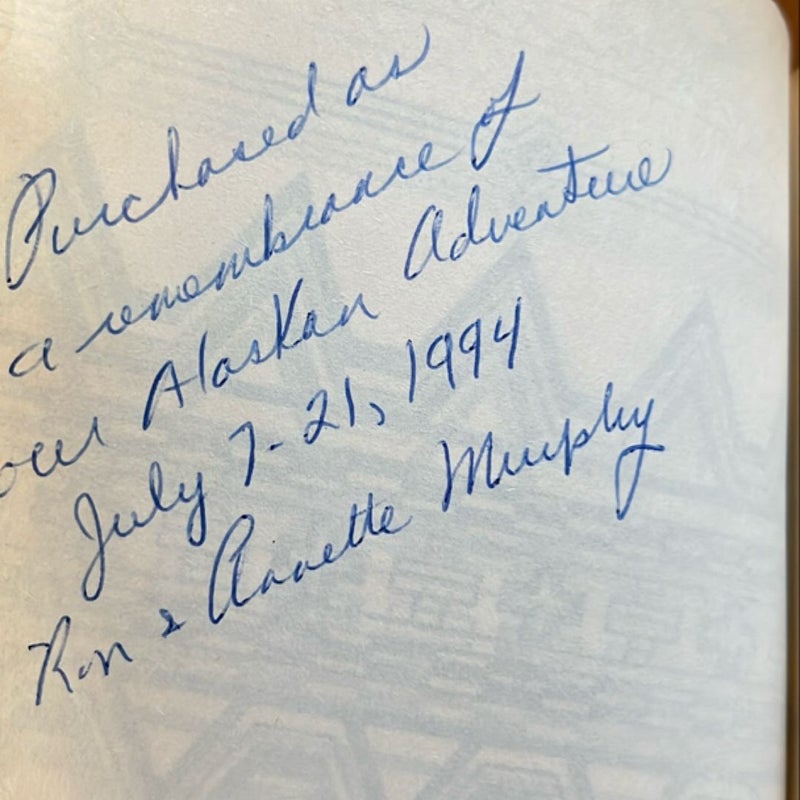 Purchased as
a remembrance of
our Alaskan Adventure
July 7-21, 1994
Ron & Annette Murphy